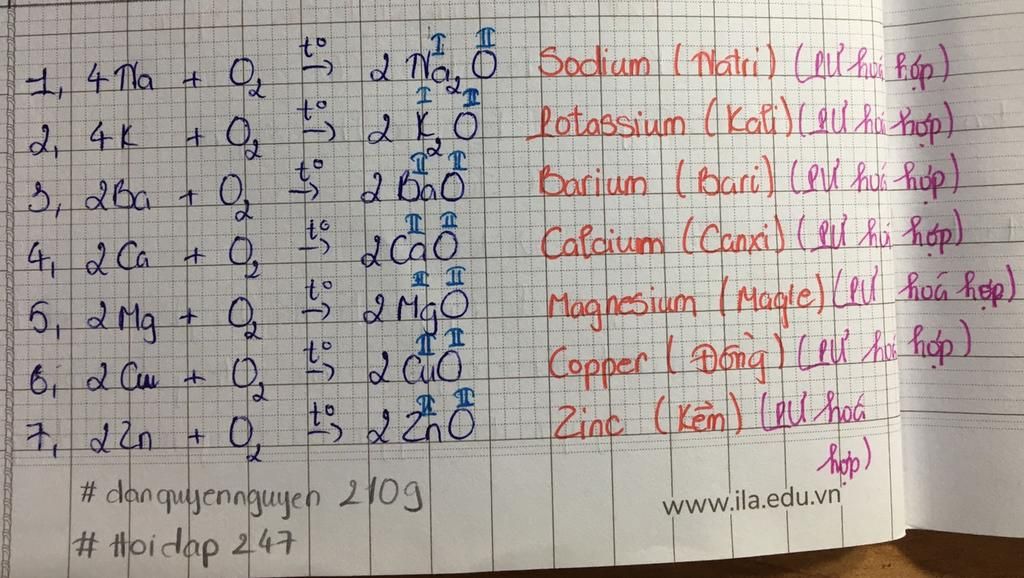 1, 4Na + O₂ t° → 2 Na₂O I II Sodium (Natri) (PƯ hoá hợp)
2, 4K + O₂ t° → 2 K₂O I II Potassium (Kali) (PƯ hoá hợp)
3, 2Ba + O₂ t° → 2BaO II II Barium (Bari) (PƯ hoá hợp)
4, 2Ca + O₂ t° → 2CaO II II Calcium (Canxi) (PƯ hoá hợp)
5, 2Mg + O₂ t° → 2MgO II II Magnesium (Magie) (PƯ hoá hợp)
6, 2Cu + O₂ t° → 2CuO II II Copper (Đồng) (PƯ hoá hợp)
7, 2Zn + O₂ t° → 2ZnO II II Zinc (Kẽm) (PƯ hoá
hợp)
# danquyennguyen 2109
www.ila.edu.vn
# Hoidap 247